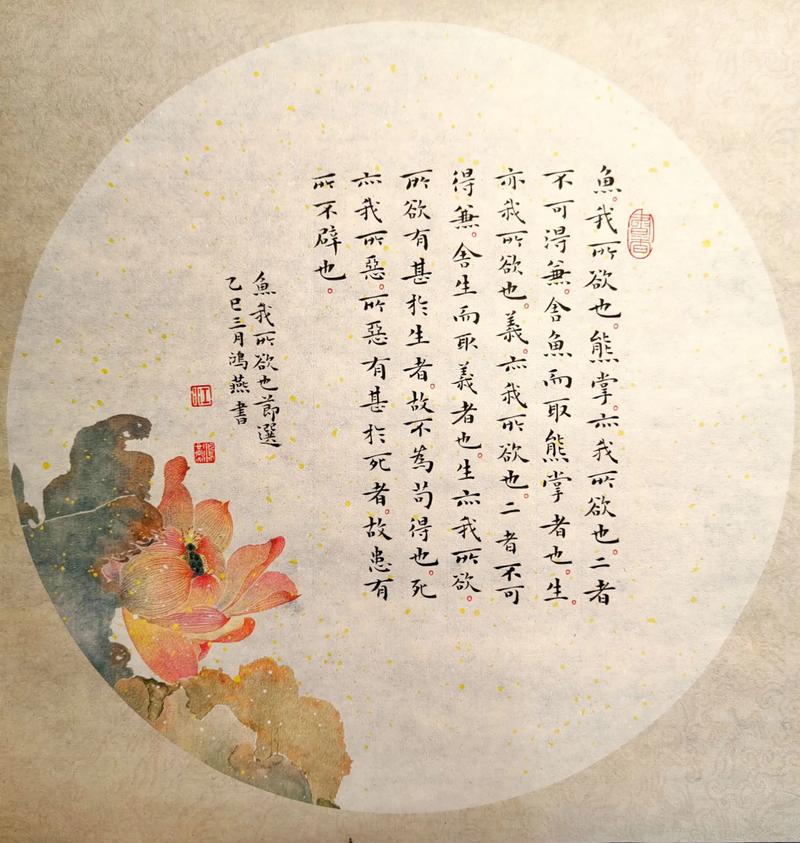 魚。我所欲也。熊掌。亦我所欲也。二者
不可得兼。舍魚而取熊掌者也。生。
亦我所欲也。義。亦我所欲也。二者不可
得兼。舍生而取義者也。生亦我所欲。
所欲有甚於生者。故不為苟得也。死
亦我所惡。所惡有甚於死者。故患有
所不辟也。
魚我所欲也節選
乙巳三月鴻燕書
江